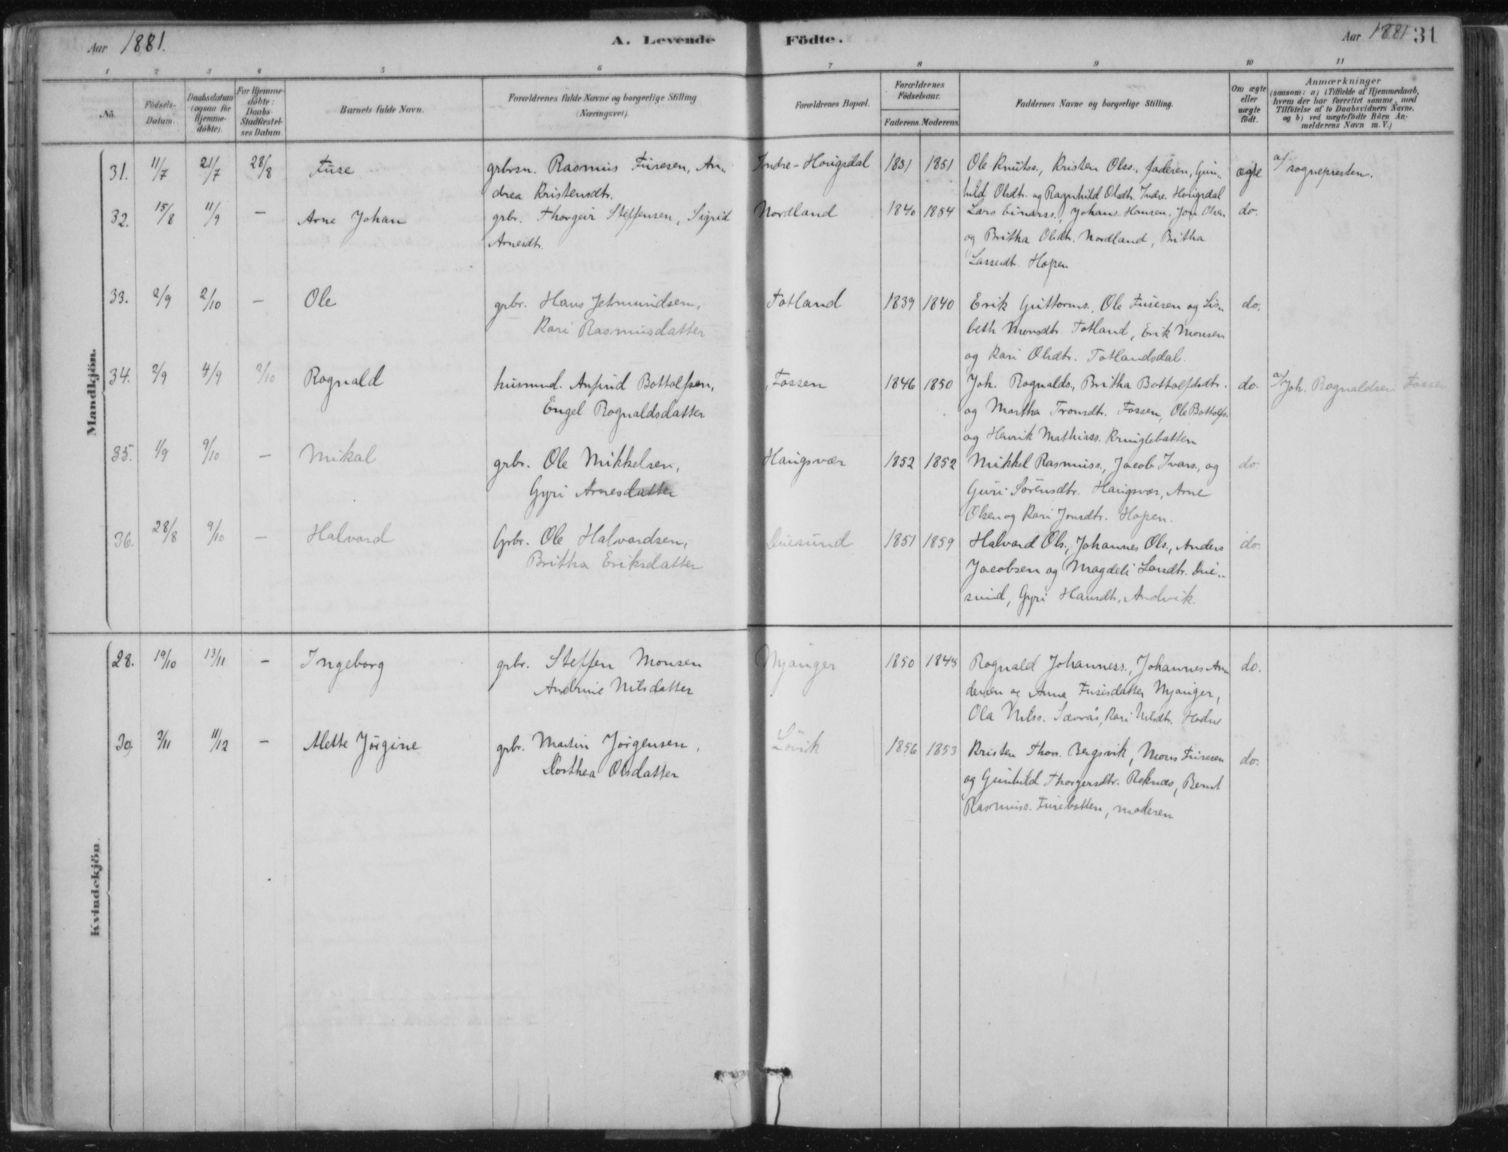 Aar 1881.
A. Levende Födte.
Aar 1881 31
1 2 3 4 5 6 7 8 9 10 11
No.
Födsels-Datum.
Daabsdatum (ogsaa for Hjemme-döbte).
For Hjemme-döbte: Daabs-Stadfæstel-ses Datum
Barnets fulde Navn.
Forældrenes fulde Navne og borgerlige Stilling (Næringsvei).
Forældrenes Bopæl.
Forældrenes Födselsaar.
Faderens. Moderens.
Faddernes Navne og borgerlige Stilling.
Om ægte eller uægte født.
Anmærkninger
(saasom: a) i Tilfælde af Hjemmedaab, hvem der har forrettet samme, med Tilföielse af to Daabsvidners Navne, og b) ved uægtefödte Börn An-melderens Navn m. V.)
Mandkjön.
31. 11/7 21/7 28/8 Fuse
grbrsn. Rasmus Fusesen, An-
drea Kristensdtr.
Indre-Hougsdal 1851 1851
Ole Knutsn, Kristen Olss., faderen, Gun-
hild Olsdtr. og Ragnhild Olsdtr. Indre Hougsdal
ægte
a/ sognepresten.
32. 15/8 11/9 — Arne Johan
grbr. Thorgeir Steffensen, Sigrid
Arnesdtr.
Nordland 1840 1854
Lars Einarss., Johans Hansen, Jon Olsen
og Britha Olsdtr. Nordland, Britha
Lassedtr. Hopen
do.
33. 2/9 2/10 — Ole
grbr. Hans Jetmundsen,
Kari Rasmusdatter
Totland 1839 1840
Erik Guttorms. Ole Fusesen og Lis-
beth Monsdtr. Totland, Erik Monsen
og Kari Olsdtr. Totlandsdal.
do.
34. 2/9 4/9 2/10 Rognald
husmnd. Anfind Bottolfsen,
Engel Rognaldsdatter
Fossen 1846 1850
Joh. Rognalds., Britha Bottolfsdtr.
og Martha Tronsdtr. Fossen, Ole Bottolfs.
og Henrik Mathiass. Kringlebotten
do.
a/ Joh. Rognaldsen Fossen
35. 1/9 9/10 — Mikal
grbr. Ole Mikkelsen,
Gyri Arnesdatter
Haugsvær 1852 1852
Mikkel Rasmuss., Jacob Ivars., og
Guri Sörensdtr. Haugsvær, Arne
Olsen og Kari Jonsdtr. Hopen.
do.
36. 28/8 9/10 — Halvard
Grbr. Ole Halvardsen,
Britha Eriksdatter
Duesund 1851 1859
Halvard Ols., Johannes Ols., Anders
Jacobsen og Magdeli Larsdtr. Due-
sund, Gyri Hansdtr. Andvik.
do.
Kvindekjön.
28. 19/10 13/11 — Ingeborg
grbr. Steffen Monsen
Andrine Nilsdatter
Mjanger 1850 1848
Rognald Johanness., Johannes An-
dersen og Anna Fusesdatter Mjanger,
Ola Nilss. Sævrås, Kari Nilsdtr.
do.
30. 3/11 11/12 — Alette Jørgine
grbr. Martin Jørgensen,
Dorthea Olsdatter
Lövik 1856 1853
Kristen Thos. Bergsvik, Mons Fusesen
og Gunhild Thorgersdtr. Reknæs, Bernt
Rasmuss. Fusebotten, moderen
do.